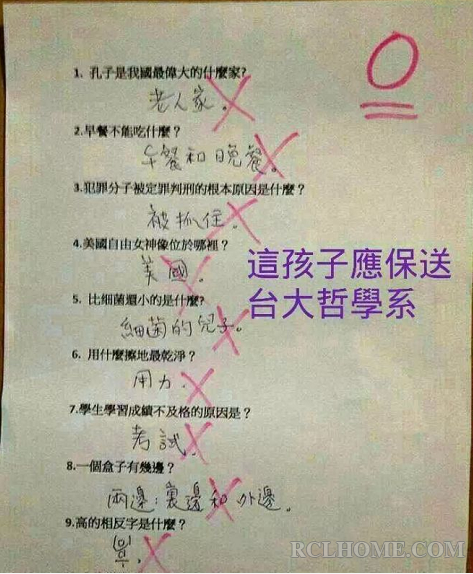 0
1. 孔子是我國最偉大的什麼家?
老人家。
2.早餐不能吃什麼？
午餐和晚餐。
3.犯罪分子被定罪判刑的根本原因是什麼？
被抓住。
4.美國自由女神像位於哪裡？
美國。
這孩子應保送
台大哲學系
5. 比細菌還小的是什麼?
細菌的兒子。
6. 用什麼擦地最乾淨？
用力.
7.學生學習成績不及格的原因是？
考試.
8.一個盒子有幾邊？
兩邊：裏邊和外邊。
9.高的相反字是什麼？
RCLHOME.COM